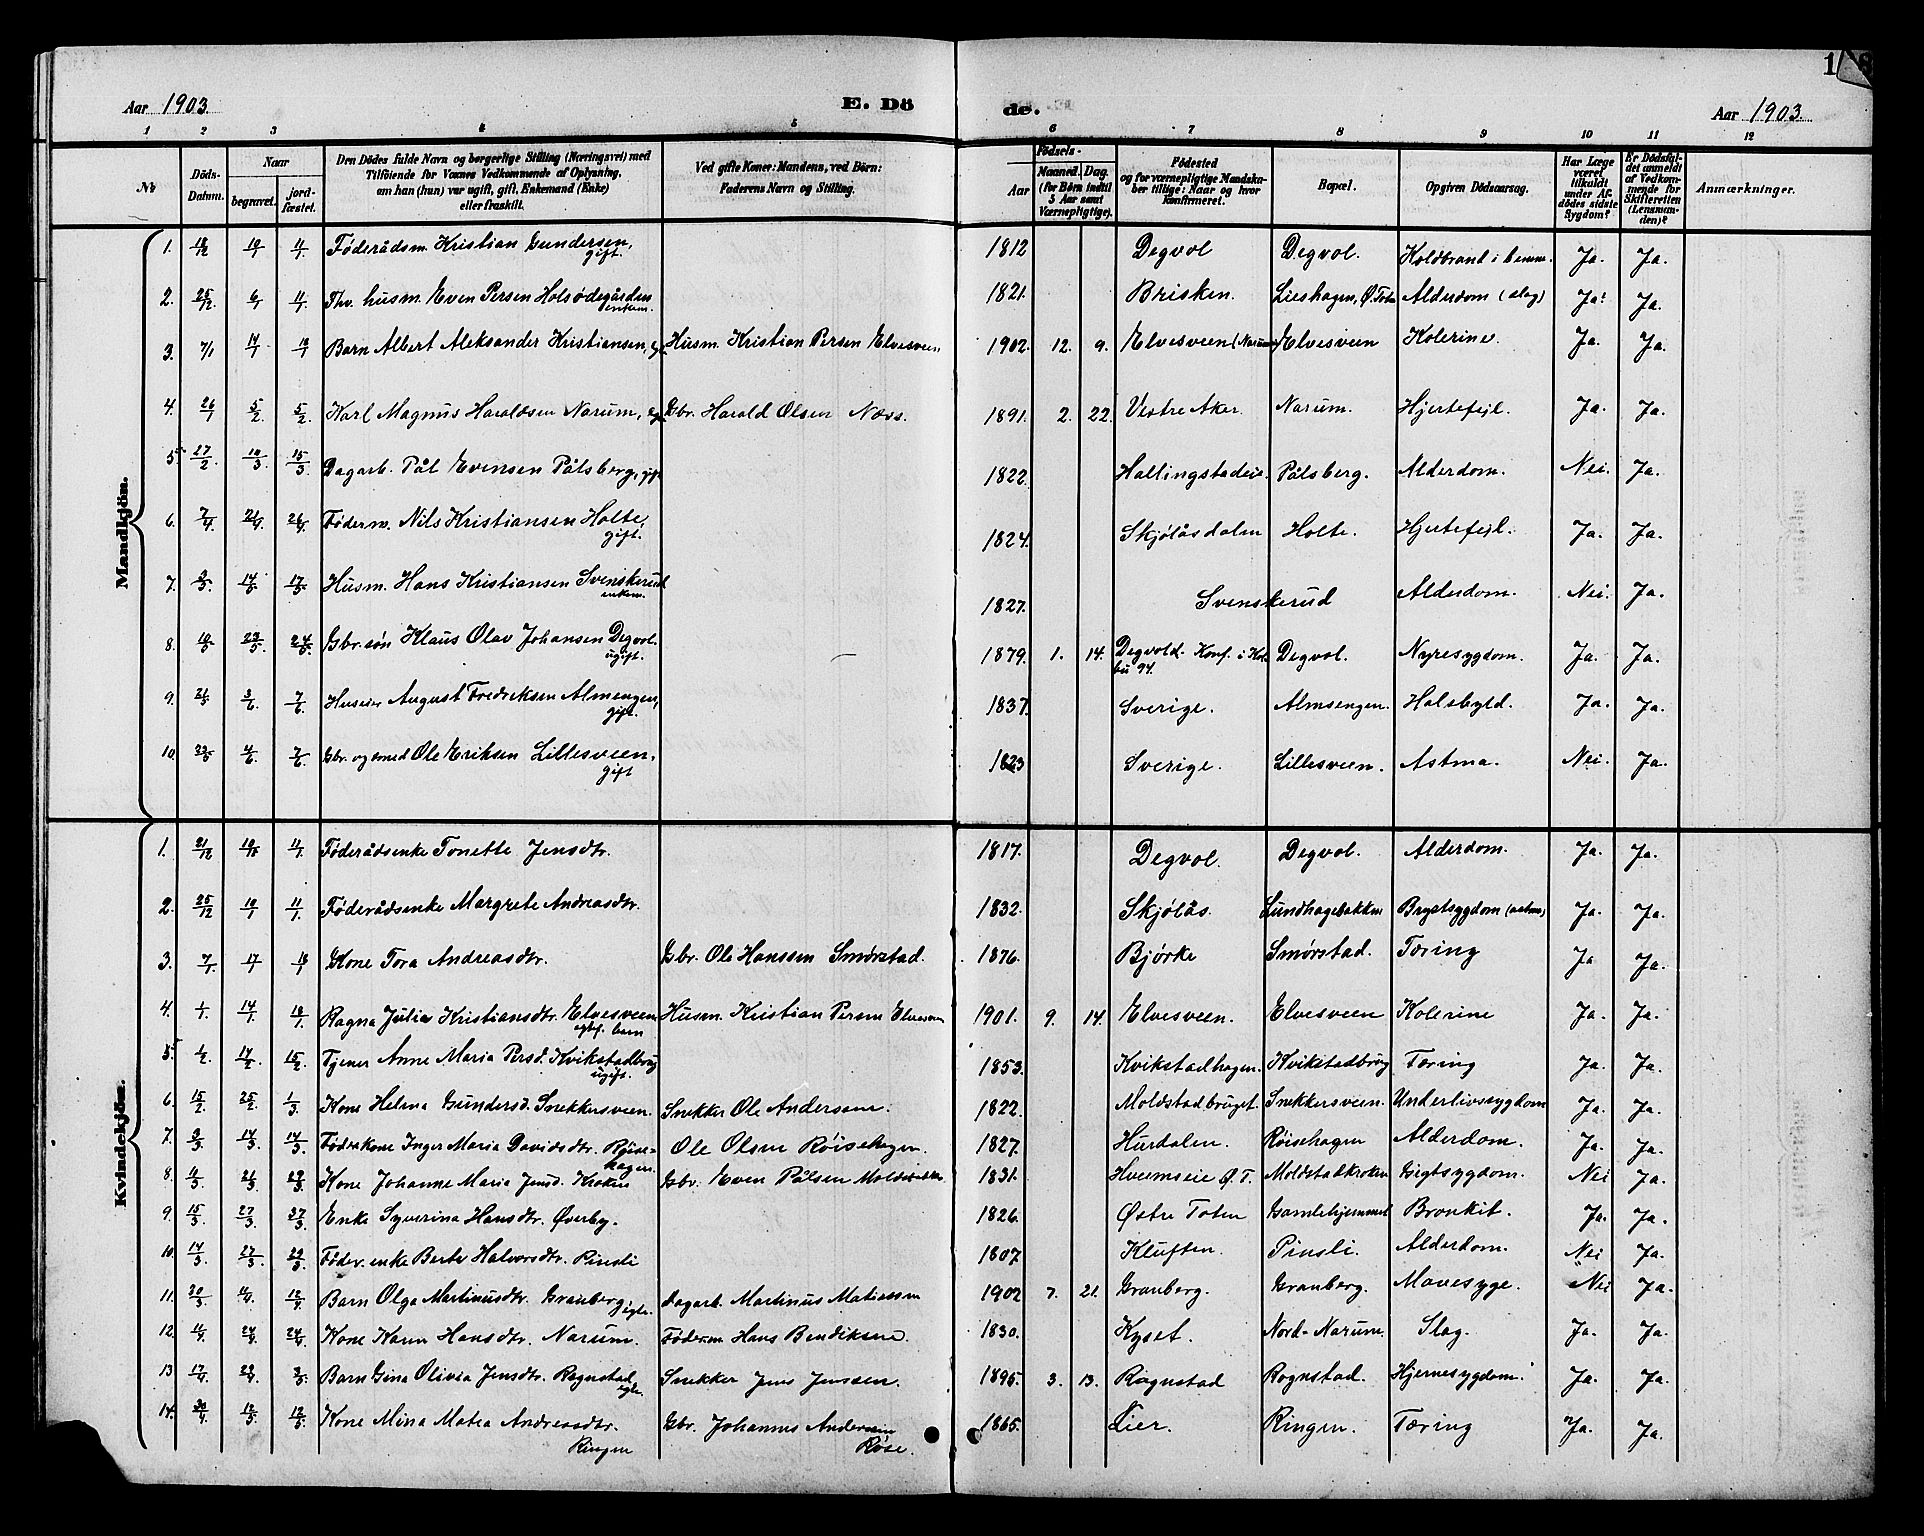 Aar 1903. E. Dö de. Aar 1903.
1 2 3 4 5 6 7 8 9 10 11 12
No
Döds-Datum.
Naar begravet. jordfæstet.
Den Dödes fulde Navn og borgerlige Stilling (Næringsvei) med Tilföiende for Voxnes Vedkommende af Oplysning, om han (hun) var ugift, gift, Enkemand (Enke) eller fraskilt.
Ved gifte Koner: Mandens, ved Börn: Faderens Navn og Stilling.
Födsels- Aar Maaned. Dag. (for Börn indtil 5 Aar samt Værnepligtige).
Födested og for værnepligtige Mandskaber tillige: Naar og hvor konfirmeret.
Bopæl.
Opgiven Dödsaarsag.
Har Læge været tilkaldt under Afdödes sidste Sygdom?
Er Dödsfaldet anmeldt af Vedkommende for Skifteretten (Lensmanden)?
Anmærkninger.
Mandkjön.
1. 18/12 10/1 11/1. Föderådsm. Kristian Gundersen, gift. 1812 Degvol Degvol. Koldbrand i benene. Ja. Ja.
2. 25/12. 6/1 11/1 Fhv. husm. Even Persen Holsödegården enkem. 1821. Brisken. Lieshagen, Ø. Toten Alderdom (slag) Ja. Ja.
3. 7/1 14/1 18/1 Barn Albert Aleksander Kristiansen, Husm. Kristian Persen Elvesveen 1902. 12. 9. Elvesveen (Narum) Elvesveen Kolerine. Ja. Ja.
4. 26/1 5/2. 5/2. Karl Magnus Haraldsen Narum, Gbr. Harald Olsen Næss. 1891. 2. 22. Vestre Aker. Narum. Hjertefejl. Ja. Ja.
5. 27/2. 10/3. 15/3. Dagarb. Pål Evensen Pålsberg, gift. 1822. Hallingstadeie. Pålsberg. Alderdom. Nei. Ja.
6. 7/4. 21/4. 26/4. Föderm. Nils Kristiansen Holte, gift. 1824. Skjölåsdalen Holte. Hjertefejl. Ja. Ja.
7. 14/5 17/5 Husm. Hans Kristiansen Svenskerud enkem. 1827. Svenskerud Alderdom. Nei. Ja.
8. 10/5 23/5. 24/5. Gbr.sön Klaus Olav Johansen Degvol. ugift. 1879. 1. 14. Degvold. Konf. i Kolbu 94. Degvol. Nyresygdom. Ja. Ja.
9. 26/5 3/6. 7/6. Huseier August Fredriksen Almsengen, gift. 1837. Sverige. Almsengen. Halsbyld. Ja. Ja.
10. 4/6. 7/6. Gbr. og smed Ole Eriksen Lillesveen. gift 1823 Sverige. Lillesveen. Astma. Nei. Ja.
Kvindekjön.
1. 21/12 10/1 11/1. Föderådsenke Tonette Jensdtr. 1817. Degvol. Degvol. Alderdom. Ja. Ja.
2. 25/12 10/1 11/1. Föderådsenke Margrete Andreasdtr. 1832. Skjölås. Lundhagebakken Brystsygdom (astma) Ja. Ja.
3. 7/1. 17/1 18/1 Kone Tora Andreasdtr. Gbr. Ole Hanssen Smörstad. 1876. Bjørke Smörstad. Tæring Ja Ja.
4. 14/1. 18/1. Ragna Julia Kristiansdtr. Elvesveen egtef. barn Husm. Kristian Persen Elvesveen 1901. 9. 14. Elvesveen. Elvesveen Kolerine Ja. Ja.
5. 1/2. 14/2. 15/2. Tjener Anne Maria Persd. Kvikstadbrug ugift. 1853. Kvikstadhagen. Kvikstadbrug Tæring Ja. Ja.
6. 15/2. 25/2. 1/3. Kone Helma Gundersd. Snekkersveen. Snekker Ole Andersen. 1822. Moldstadbruget. Snekkersveen. Underlivssygdom Ja. Ja.
7. 14/3. 14/3. Föderkone Inger Maria Davidsdtr. Röisehagen. Ole Olsen Röisehagen. 1827. Hurdalen. Röisehagen Alderdom. Ja. Ja.
8. 26/3. 29/3. Kone Johanne Maria Jensd. Kroken Gbr. Even Pålsen 1831. Hveemseie Ø. T. Moldstadkroken Gigtsygdom. Nei Ja.
9. 15/3. 27/3. 27/3. Enke Syverina Hansdtr. Øverby. 1826. Østre Toten Gamlehjemmet Bronkit. Ja. Ja.
10. 14/3. 27/3. 29/3. Föder.enke Berte Halvorsdtr. Pinsli 1807. Kluften. Pinsli. Alderdom. Nei Ja.
11. 30/3. 12/4. Barn Olga Martinusdtr. Granberg, egte. Dagarb. Martinus Matiassen 1902 7. 21. Granberg. Granberg. Mavesyge. Nei Ja.
12. 11/4. 24/4. 24/4. Kone Karen Hansdtr. Narum. Föderm. Hans Bendiksen. 1830. Kyset. Nord-Narum. Slag. Ja. Ja.
13 17/4. 29/4. 3/5. Barn Gina Olivia Jensdtr. Rognstad egte. Snekker Jens Jenssen. 1895. 3. 13. Rognstad Rognstad. Hjernesygdom. Ja. Ja.
14. 30/4. 12/5. 12/5. Kone Mina Matea Andreasdtr. Ringen Gbr. Johannes Andersen Röse. 1865. Lier. Ringen. Tæring Ja. Ja.